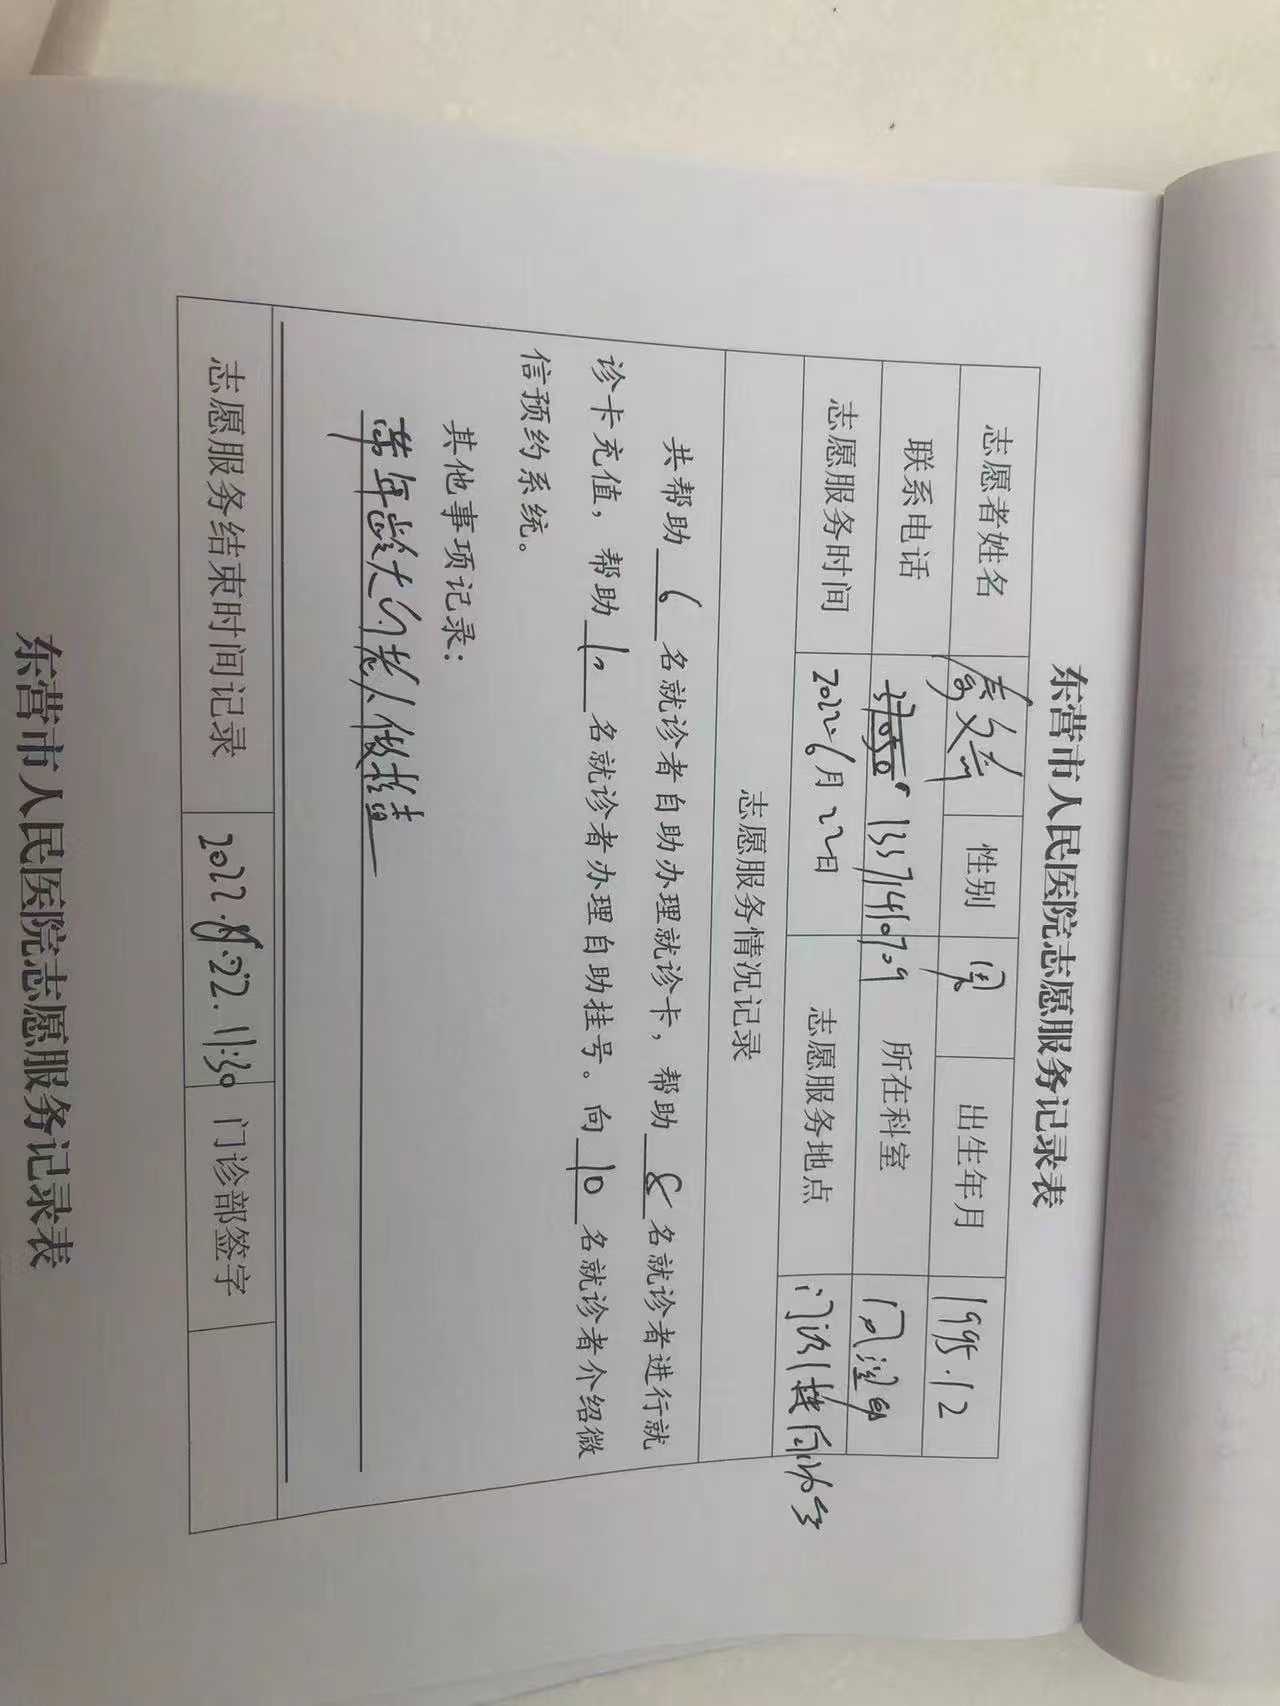 东营市人民医院志愿服务记录表
志愿者姓名 性别 男 出生年月 1995.12
联系电话 13371410709 所在科室
志愿服务时间 2022年6月22日 志愿服务地点 门诊楼自助
志愿服务情况记录
共帮助 6 名就诊者自助办理就诊卡，帮助 8 名就诊者进行就
诊卡充值，帮助 10 名就诊者办理自助挂号。向 10 名就诊者介绍微
信预约系统。
其他事项记录：
帮年龄大的老人做核查
志愿服务结束时间记录 2022.6.22.11:30 门诊部签字
东营市人民医院志愿服务记录表